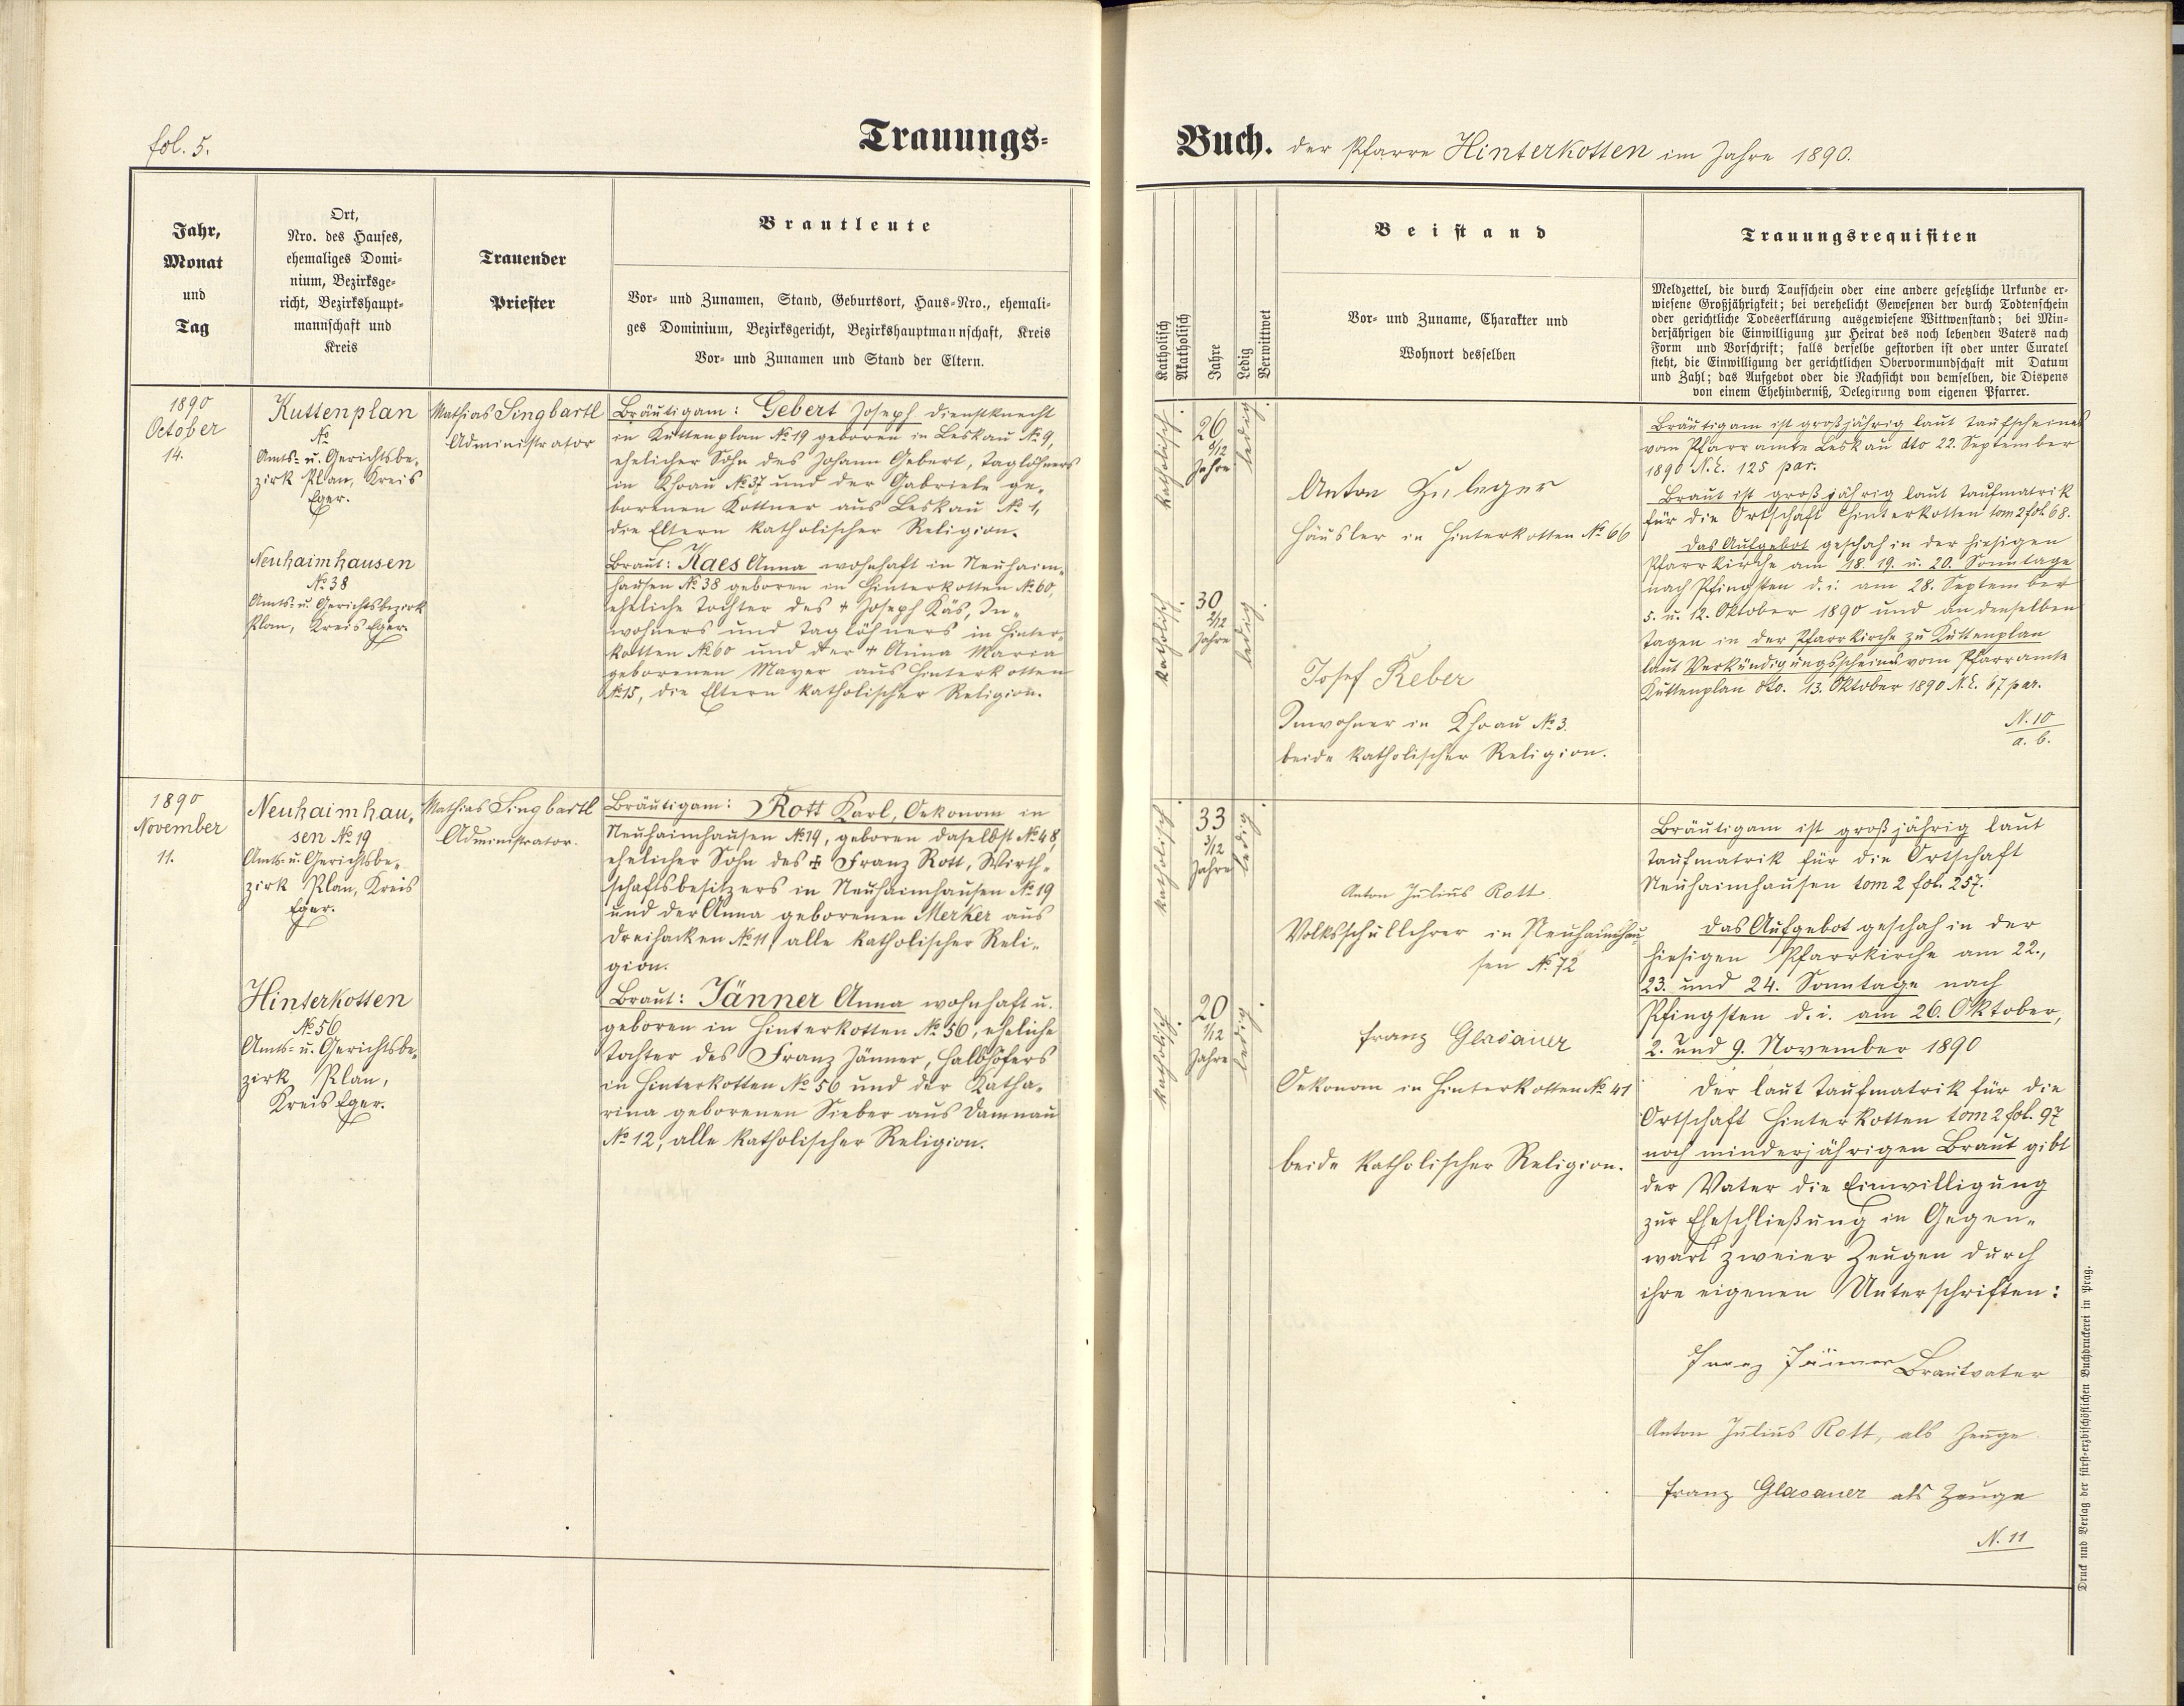 fol. 5.
Trauungs-
Jahr,
Monat
und
Tag
Ort,
Nro. des Hauses,
ehemaliges Domi-
nium, Bezirksge-
richt, Bezirkshaupt-
mannschaft und
Kreis
Trauender
Priester
Brautleute
Vor- und Zunamen, Stand, Geburtsort, Haus-Nro., ehemali-
ges Dominium, Bezirksgericht, Bezirkshauptmannschaft, Kreis
Vor- und Zunamen und Stand der Eltern.
1890
October
14.
Kuttenplan
No
Amts- u. Gerichtsbe-
zirk Plan, Kreis
Eger.
Neuhaimhausen
No 38
Amts- u. Gerichtsbezirk
Plan, Kreis Eger.
Mathias Singbartl
Administrator
Bräutigam: Gebert Joseph Dienstknecht
in Kuttenplan No 19 geboren in Leskau No 9,
ehelicher Sohn des Johann Gebert, Taglöhners
in Khoau No 37 und der Gabriele ge-
borenen Kottner aus Leskau No 1,
die Eltern katholischer Religion.
Braut: Kaes Anna wohnhaft in Neuhaim-
hausen No 38 geboren in Hinterkotten No 60,
eheliche Tochter des + Joseph Käs, In-
wohners und Taglöhners in Hinter-
kotten No 60 und der + Anna Maria
geborenen Mayer aus Hinterkotten
No 15, die Eltern katholischer Religion.
1890
November
11.
Neuhaimhau-
sen No 19
Amts- u. Gerichtsbe-
zirk Plan, Kreis
Eger.
Hinterkotten
No 56
Amts- u. Gerichtsbe-
zirk Plan,
Kreis Eger.
Mathias Singbartl
Administrator.
Bräutigam: Rott Karl, Oekonom in
Neuhaimhausen No 19, geboren daselbst No 48,
ehelicher Sohn des + Franz Rott, Wirth-
schaftsbesitzers in Neuhaimhausen No 19
und der Anna geborenen Merker aus
Dreihacken No 11, alle katholischer Reli-
gion.
Braut: Jänner Anna wohnhaft u.
geboren in Hinterkotten No 56, eheliche
Tochter des Franz Jänner, Halbhöfers
in Hinterkotten No 56 und der Katha-
rina geborenen Sieber aus Damnau
No 12, alle katholischer Religion.
Buch. der Pfarre Hinterkotten im Jahre 1890.
Katholisch
Akatholisch
Jahre
Ledig
Verwittwet
Beistand
Vor- und Zuname, Charakter und
Wohnort desselben
Trauungsrequisiten
Meldzettel, die durch Taufschein oder eine andere gesetzliche Urkunde er-
wiesene Großjährigkeit; bei verehelicht Gewesenen der durch Todtenschein
oder gerichtliche Todeserklärung ausgewiesene Wittwenstand; bei Min-
derjährigen die Einwilligung zur Heirat des noch lebenden Vaters nach
Form und Vorschrift; falls derselbe gestorben ist oder unter Curatel
steht, die Einwilligung der gerichtlichen Obervormundschaft mit Datum
und Zahl; das Aufgebot oder die Nachsicht von demselben, die Dispens
von einem Ehehinderniß, Delegirung vom eigenen Pfarrer.
katholisch.
26
Jahre
ledig.
katholisch.
30
2/12
Jahre
ledig.
Anton Zuleger
Häusler in Hinterkotten No 66
Josef Reber
Inwohner in Khoau No 3.
beide katholischer Religion.
Bräutigam ist großjährig laut Taufscheines
vom Pfarramte Leskau dto 22. September
1890 N.E. 125 par.
Braut ist großjährig laut Taufmatrik
für die Ortschaft Hinterkotten tom 2 fol. 68.
Das Aufgebot geschah in der hiesigen
Pfarrkirche am 18. 19. u. 20. Sonntage
nach Pfingsten d. i. am 28. September
5. u. 12. Oktober 1890 und an denselben
Tagen in der Pfarrkirche zu Kuttenplan
laut Verkündigungsscheines vom Pfarramte
Kuttenplan dto. 13. Oktober 1890 N.E. 67 par.
N. 10
a. b.
katholisch.
33
3/12
Jahre
ledig.
katholisch.
20
1/12
Jahre
ledig.
Anton Julius Rott
Volksschullehrer in Neuhaimhau-
sen No 72
Franz Glasauer
Oekonom in Hinterkotten No 41
beide katholischer Religion.
Bräutigam ist großjährig laut
Taufmatrik für die Ortschaft
Neuhaimhausen tom 2 fol. 257.
Das Aufgebot geschah in der
hiesigen Pfarrkirche am 22.,
23. und 24. Sonntage nach
Pfingsten d. i. am 26. Oktober,
2. und 9. November 1890
Der laut Taufmatrik für die
Ortschaft Hinterkotten tom 2 fol. 97
noch minderjährigen Braut gibt
der Vater die Einwilligung
zur Eheschließung in Gegen-
wart zweier Zeugen durch
ihre eigenen Unterschriften:
Franz Jänner Brautvater
Anton Julius Rott, als Zeuge
Franz Glasauer als Zeuge
N. 11
Druck und Verlag der fürst-erzbischöflichen Buchdruckerei in Prag.